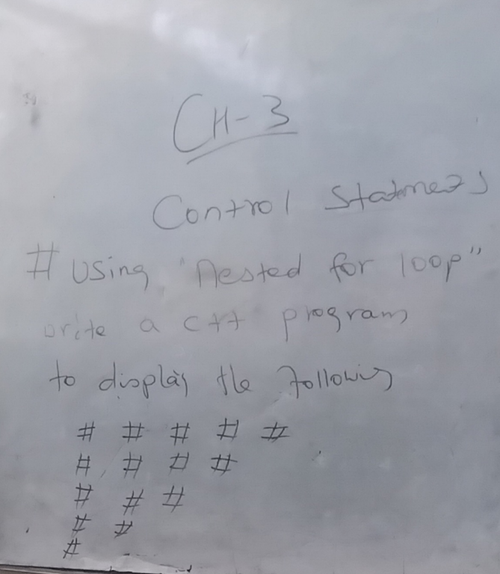 CH-3
Control Statmets
# Using "Nested for loop"
write a c++ program
to display the following
# # # # #
# # # #
# # #
# #
#